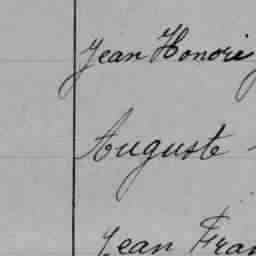 Jean Honoré
Auguste
Jean Fran